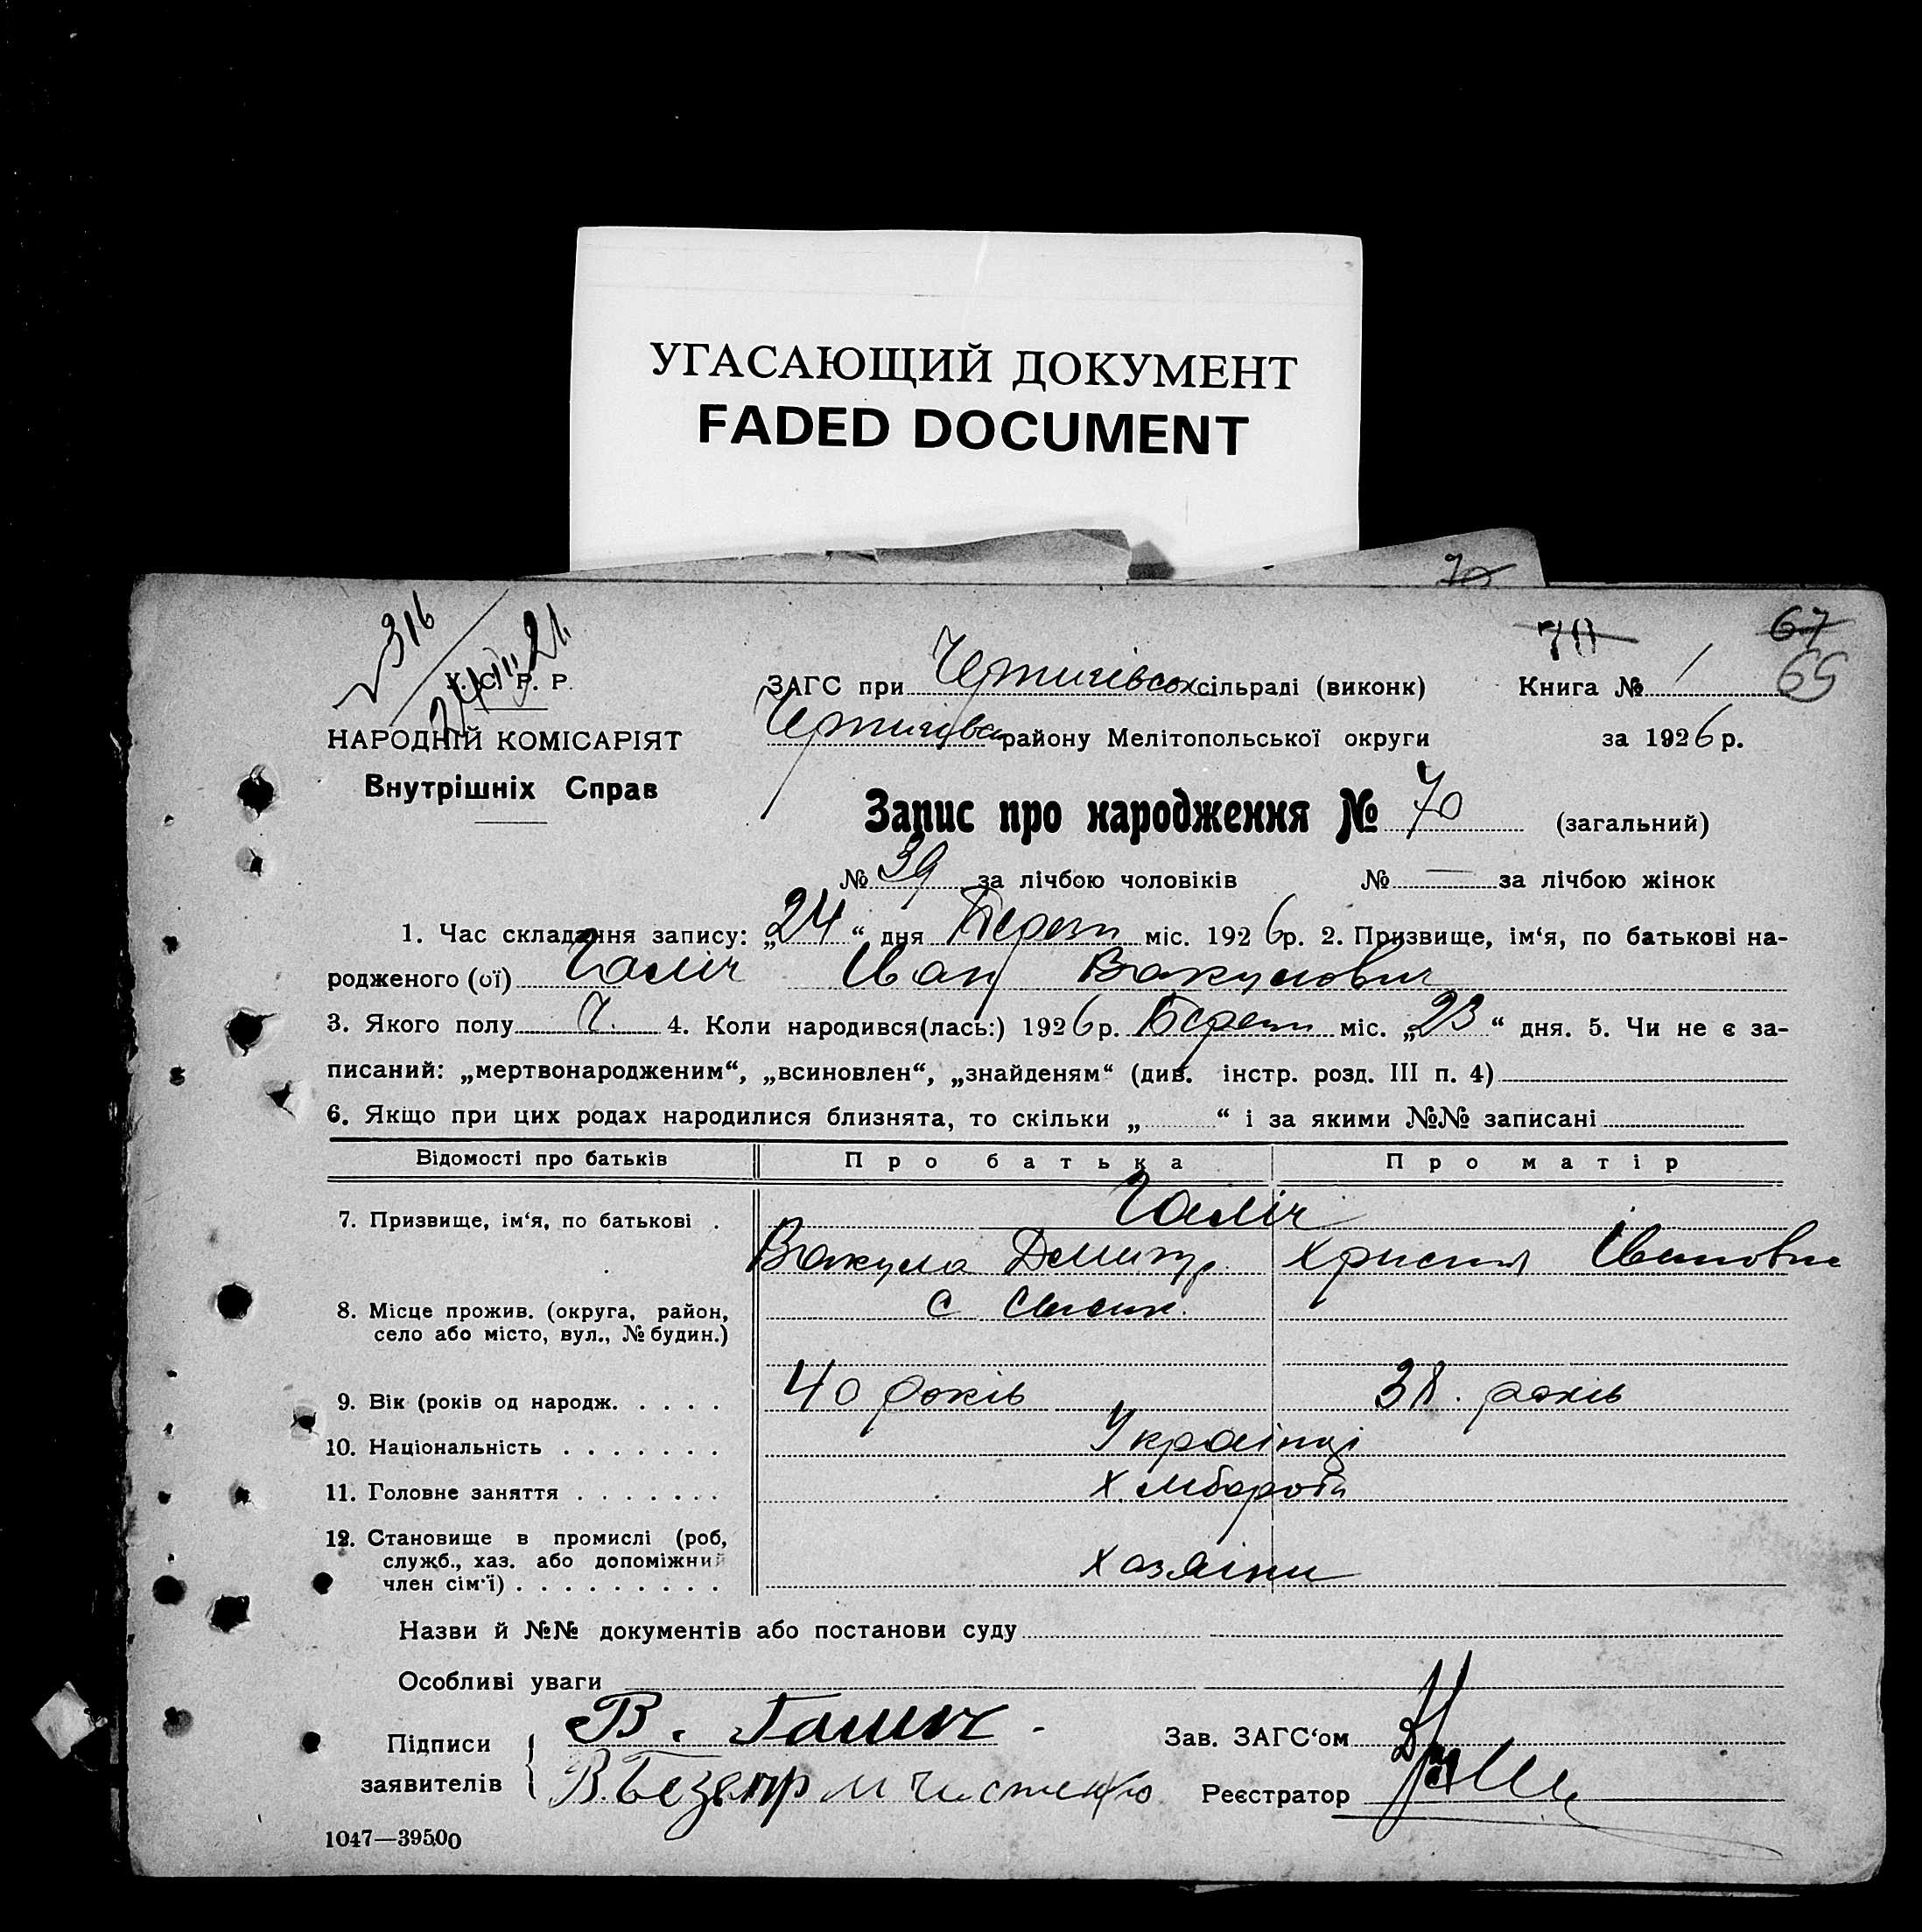 УГАСАЮЩИЙ ДОКУМЕНТ
FADED DOCUMENT
70
70
67
65
316
У. С. Р. Р.
НАРОДНІЙ КОМІСАРІЯТ
Внутрішніх Справ
ЗАГС при Чернигівськ сільраді (виконк) Книга № 1
району Мелітопольської округи за 1926 р.
Запис про народження № 70 (загальний)
№ 39 за лічбою чоловіків № — за лічбою жінок
1. Час складання запису: „24“ дня Березн міс. 1926 р. 2. Призвище, ім‘я, по батькові на-
родженого (ої) Галіч Іван Вакулович
3. Якого полу Ч. 4. Коли народився(лась:) 1926 р. Березн міс. „23“ дня. 5. Чи не є за-
писаний: „мертвонародженим“, „всиновлен“, „знайденям“ (див. інстр. розд. III п. 4)
6. Якщо при цих родах народилися близнята, то скільки „ “ і за якими №№ записані
Відомості про батьків Про батька Про матір
7. Призвище, ім‘я, по батькові . Галіч
Вакула Дмитр. Христя Івановна
8. Місце прожив. (округа, район,
село або місто, вул., № будин.)
9. Вік (років од народж. . . . . 40 років 38. років
10. Національність . . . . . . . Українці
11. Головне заняття . . . . . . . Хлібороби
12. Становище в промислі (роб,
служб., хаз. або допоміжний
член сім‘ї) . . . . . . . . . Хазяіни
Назви й №№ документів або постанови суду
Особливі уваги
Підписи В. Галич - Зав. ЗАГС‘ом
заявителів Реєстратор
1047—39500